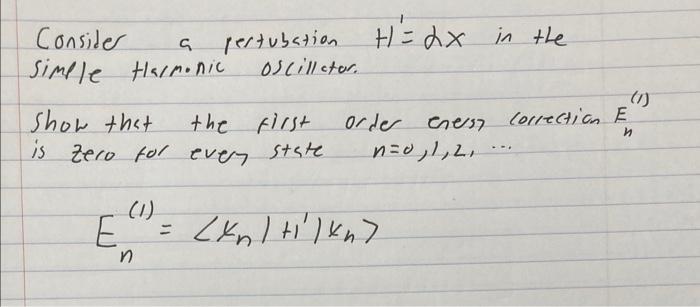 Consider a pertubation H' = αx in the
Simple Harmonic Oscillator.
Show that the first order energy correction E_n^(1)
is zero for every state n=0,1,2, ...
E_n^(1) = <ψn|H'|ψn>